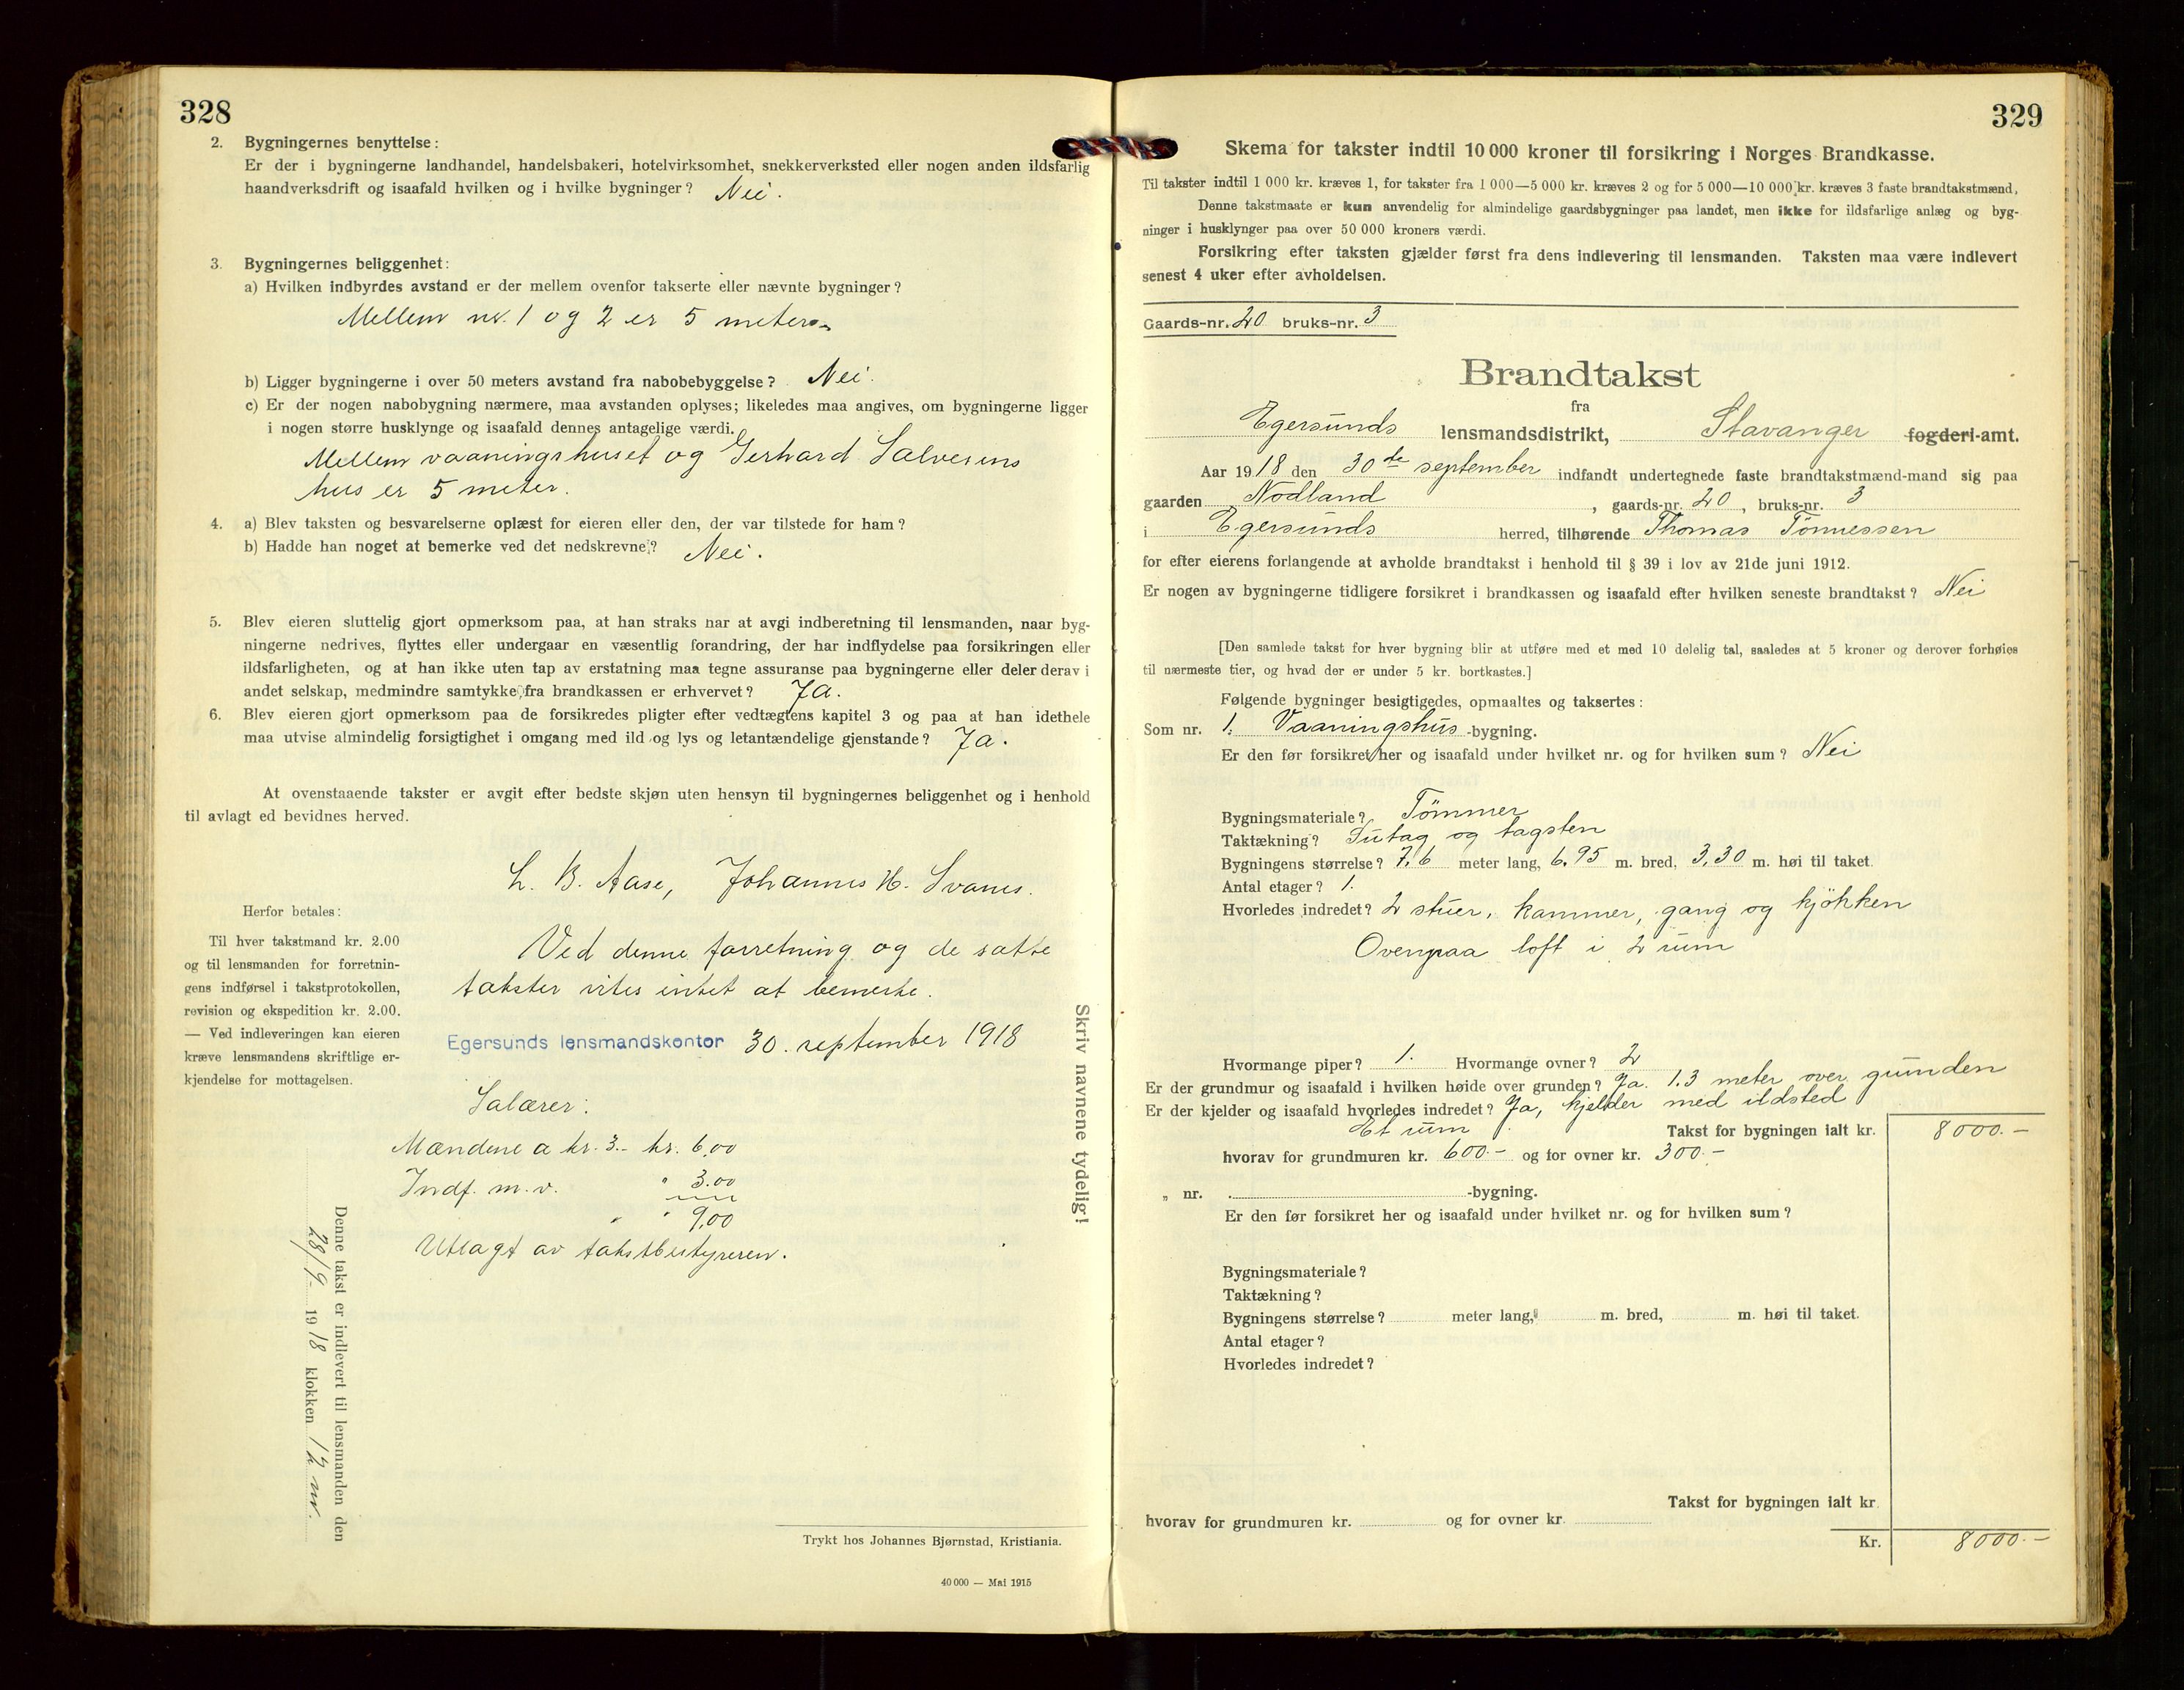 328
2. Bygningernes benyttelse:
Er der i bygningerne landhandel, handelsbakeri, hotelvirksomhet, snekkerverksted eller nogen anden ildsfarlig
haandverksdrift og isaafald hvilken og i hvilke bygninger? Nei.
3. Bygningernes beliggenhet:
a) Hvilken indbyrdes avstand er der mellem ovenfor takserte eller nævnte bygninger?
Mellem nr. 1 og 2 er 5 meter.
b) Ligger bygningerne i over 50 meters avstand fra nabobebyggelse? Nei.
c) Er der nogen nabobygning nærmere, maa avstanden oplyses; likeledes maa angives, om bygningerne ligger
i nogen større husklynge og isaafald dennes antagelige værdi.
Mellem vaaningshuset og Gerhard Salvesens
hus er 5 meter.
4. a) Blev taksten og besvarelserne oplæst for eieren eller den, der var tilstede for ham?
b) Hadde han noget at bemerke ved det nedskrevne? Nei.
5. Blev eieren sluttelig gjort opmerksom paa, at han straks har at avgi indberetning til lensmanden, naar byg-
ningerne nedrives, flyttes eller undergaar en væsentlig forandring, der har indflydelse paa forsikringen eller
ildsfarligheten, og at han ikke uten tap av erstatning maa tegne assuranse paa bygningerne eller deler derav i
andet selskap, medmindre samtykke fra brandkassen er erhvervet? Ja.
6. Blev eieren gjort opmerksom paa de forsikredes pligter efter vedtægtens kapitel 3 og paa at han idethele
maa utvise almindelig forsigtighet i omgang med ild og lys og letantændelige gjenstande? Ja.
At ovenstaaende takster er avgit efter bedste skjøn uten hensyn til bygningernes beliggenhet og i henhold
til avlagt ed bevidnes herved.
L. B. Aase, Johannes H. Svanes.
Herfor betales:
Til hver takstmand kr. 2.00
og til lensmanden for forretnin-
gens indførsel i takstprotokollen,
revision og ekspedition kr. 2.00.
— Ved indleveringen kan eieren
kræve lensmandens skriftlige er-
kjendelse for mottagelsen.
Ved denne forretning og de satte
takster vites intet at bemerke.
Egersunds lensmandskontor 30. september 1918
Salærer:
Mændene a kr. 3.- kr. 6,00
Indf. m.v. " 3.00
" " 9,00
Utlagt av takstbestyreren.
Skriv navnene tydelig!
Denne takst er indlevert til lensmanden den
28/9 1918 klokken 12 m.
Trykt hos Johannes Bjørnstad, Kristiania.
40 000 — Mai 1915
329
Skema for takster indtil 10 000 kroner til forsikring i Norges Brandkasse.
Til takster indtil 1 000 kr. kræves 1, for takster fra 1 000—5 000 kr. kræves 2 og for 5 000—10 000 kr. kræves 3 faste brandtakstmænd,
Denne takstmaate er kun anvendelig for almindelige gaardsbygninger paa landet, men ikke for ildsfarlige anlæg og byg-
ninger i husklynger paa over 50 000 kroners værdi.
Forsikring efter taksten gjælder først fra dens indlevering til lensmanden. Taksten maa være indlevert
senest 4 uker efter avholdelsen.
Gaards-nr. 20 bruks-nr. 3
Brandtakst
fra
Egersunds lensmandsdistrikt, Stavanger fogderi-amt.
Aar 1918 den 30de september indfandt undertegnede faste brandtakstmænd-mand sig paa
gaarden Nodland, gaards-nr. 20, bruks-nr. 3
i Egersunds herred, tilhørende Thomas Tönnessen
for efter eierens forlangende at avholde brandtakst i henhold til § 39 i lov av 21de juni 1912.
Er nogen av bygningerne tidligere forsikret i brandkassen og isaafald efter hvilken seneste brandtakst? Nei
[Den samlede takst for hver bygning blir at utføre med et med 10 delelig tal, saaledes at 5 kroner og derover forhøies
til nærmeste tier, og hvad der er under 5 kr. bortkastes.]
Følgende bygninger besigtigedes, opmaaltes og taksertes:
Som nr. 1. Vaaningshus -bygning.
Er den før forsikret her og isaafald under hvilket nr. og for hvilken sum? Nei
Bygningsmateriale? Tömmer
Taktækning? Sutag og tagsten
Bygningens størrelse? 7,6 meter lang, 6,95 m. bred, 3,30 m. høi til taket.
Antal etager? 1.
Hvorledes indredet? 2 stuer, kammer, gang og kjökken
Ovenpaa loft i 2 rum
Hvormange piper? 1. Hvormange ovner? 2
Er der grundmur og isaafald i hvilken høide over grunden? Ja. 1.3 meter over gunden
Er der kjelder og isaafald hvorledes indredet? Ja, kjelder med ildsted
Et rum
Takst for bygningen ialt kr. 8000.-
hvorav for grundmuren kr. 600.- og for ovner kr. 300.-
„ nr. -bygning.
Er den før forsikret her og isaafald under hvilket nr. og for hvilken sum?
Bygningsmateriale?
Taktækning?
Bygningens størrelse? meter lang, m. bred, m. høi til taket.
Antal etager?
Hvorledes indredet?
Takst for bygningen ialt kr.
hvorav for grundmuren kr. og for ovner kr.
Kr. 8000.-